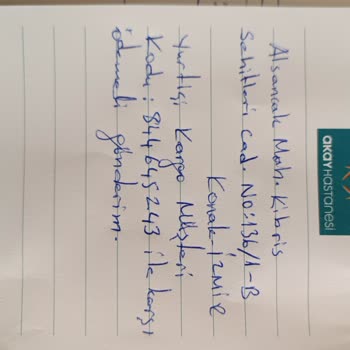 AKAY HASTANESİ
Alsancak Mah. Kıbrıs
Şehitleri Cad. No:136/1-B
Konak-İZMİR
Yurtiçi Kargo Müşteri
Kodu: 844645243 ile karşı
ödemeli gönderim.